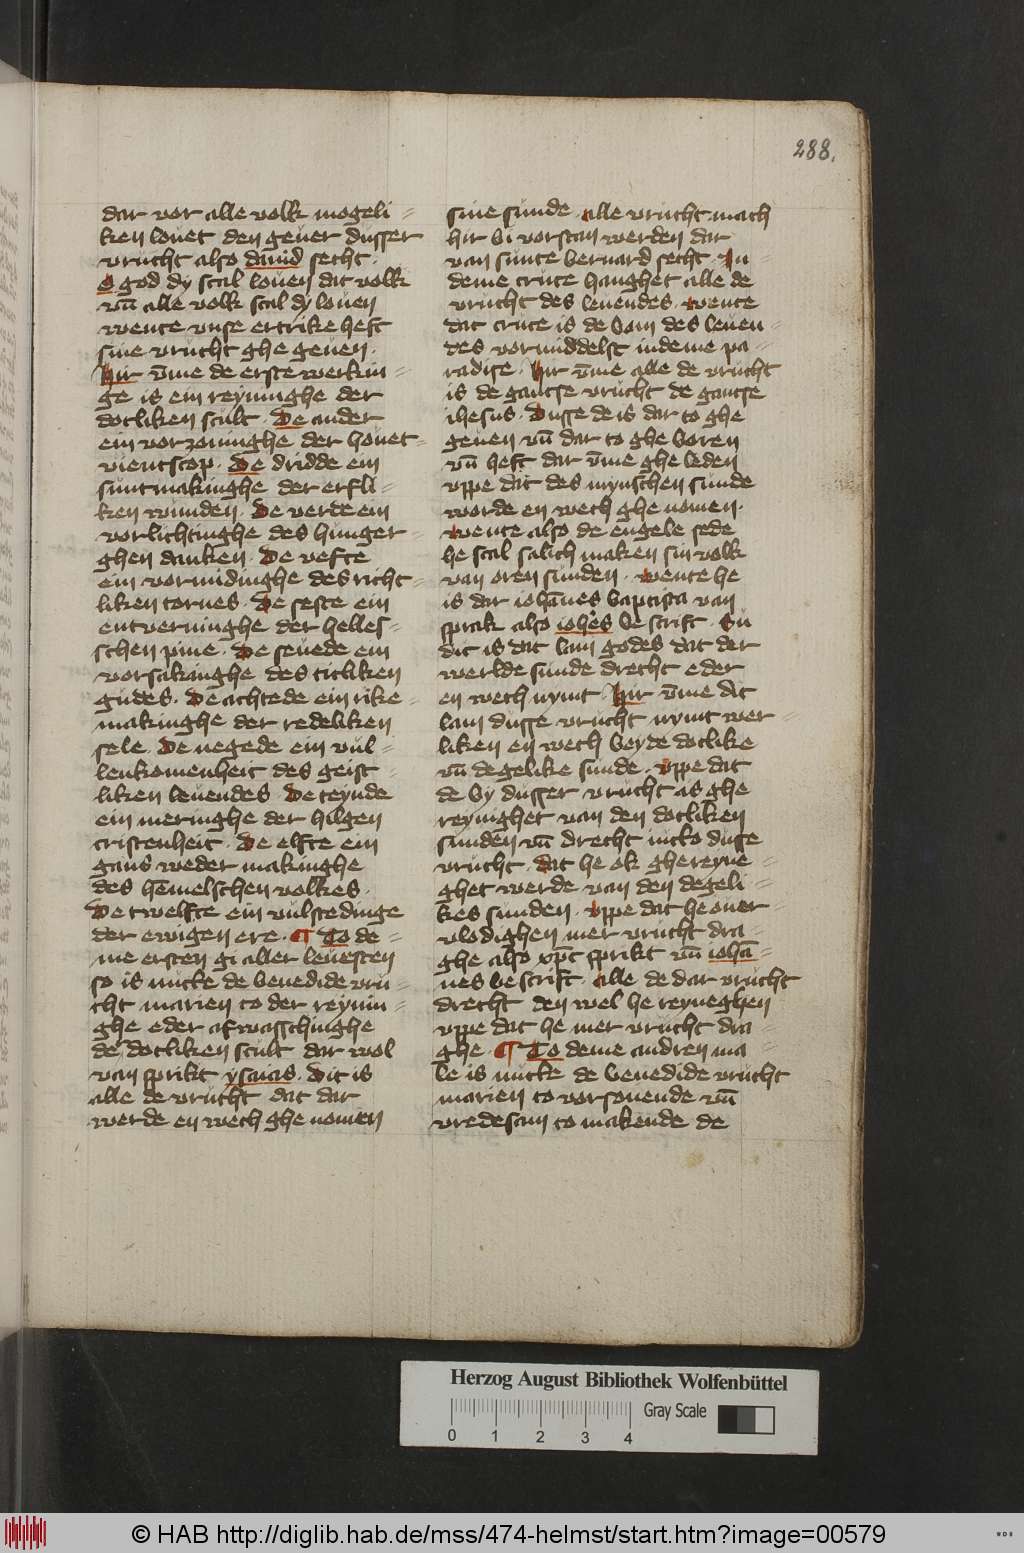 288.
dar vor alle volk mogeli=
ken louet den geuer dusser
vrucht also dauid secht.
O god dy scal louen dat volk
vn̄ alle volk scal dy louen
wente vnse ertrike heft
sine vrucht ghe geuen.
Hir v̄me de erste werkin=
ge is ein reyninghe der
dotliken scult. De ander
ein vorzoninghe der houet=
vientscop. De dridde ein
suntmakinghe der erfli=
ken wunden. De verde ein
vorlichtinghe des hunger=
ghen danken. De vefte
ein vormidinghe des richt=
liken tornes. De seste ein
entverninghe der helles=
schen pine. De seuede ein
vorsakinghe des titliken
gudes. De achtede ein rike=
makinghe der redeliken
sele. De negede ein vul=
lenkomenheit des geist=
liken leuendes. De teynde
ein meringhe der hilgen
cristenheit. De elfte ein
gans weder makinghe
des hēmelschen volkes.
De twelfte ein vulstedinge
der ewigen ere. ¶ To de=
me ersten gi aller leuesten
so is nutte de benedide vru=
cht marien to der reynin=
ghe eder afwasschinghe
de dotliken scult dar wol
van sprikt ysaias. Dit is
alle de vrucht dat dar
werde en wech ghe nomen
sine sunde. alle vrucht mach
hir bi vorstan werden dar
van sunte bernard secht. In=
deme cruce hanghet alle de
vrucht des leuendes. wente
dat cruce is de bom des leuen=
des vormiddelst indeme pa=
radise. Hir v̄me alle de vrucht
is de gantse vrucht de gantse
ihesus. Dusse de is dar to ghe
geuen vn̄ dar to ghe boren
vn̄ heft dar v̄me ghe leden
vppe dat des mynschen sunde
worde en wech ghe nomen.
wente also de engele sede
he scal salich maken sin volk
van oren sunden. wente he
is dar iohānes baptista van
sprak also ioh̄es be scrift. Su
dit is dat lam godes dat der
werlde sunde drecht eder
en wech nymt Hir v̄me dit
lam dusse vrucht nymt wer=
liken en wech beyde dotlike
vn̄ degelike sunde. vppe dat
de by dusser vrucht is ghe
reynighet van den dotliken
sunden vn̄ drecht nicto dusse
vrucht. dat he ok ghereyne=
ghet werde van den degeli=
kes sunden. vppe dat he ouer=
vlodighen mer vrucht dra=
ghe also xp̄c sprikt vn̄ iohā=
nes be scrift. alle de dar vrucht
drecht den wel he reyneghen
vppe dat he mer vrucht dra=
ghe. ¶ To deme andren ma=
le is nutte de benedide vrucht
marien to vorsonende vn̄
vredesam to makende de
Herzog August Bibliothek Wolfenbüttel
Gray Scale
0 1 2 3 4
© HAB http://diglib.hab.de/mss/474-helmst/start.htm?image=00579